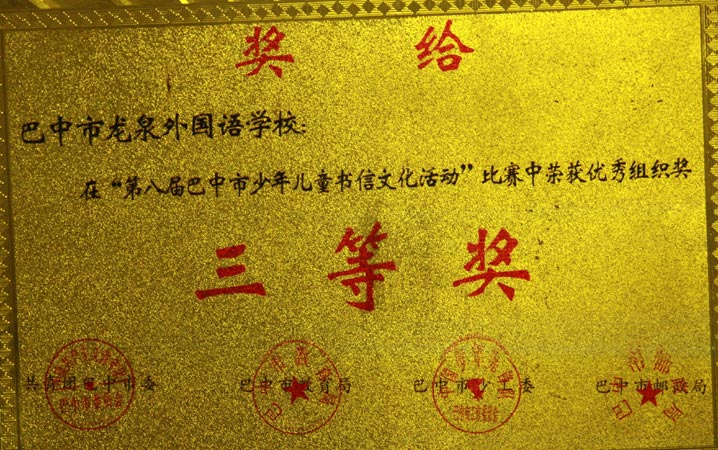 奖 给
巴中市龙泉外国语学校:
在“第八届巴中市少年儿童书信文化活动”比赛中荣获优秀组织奖
三等奖
共青团巴中市委 巴中市教育局 巴中市少工委 巴中市邮政局